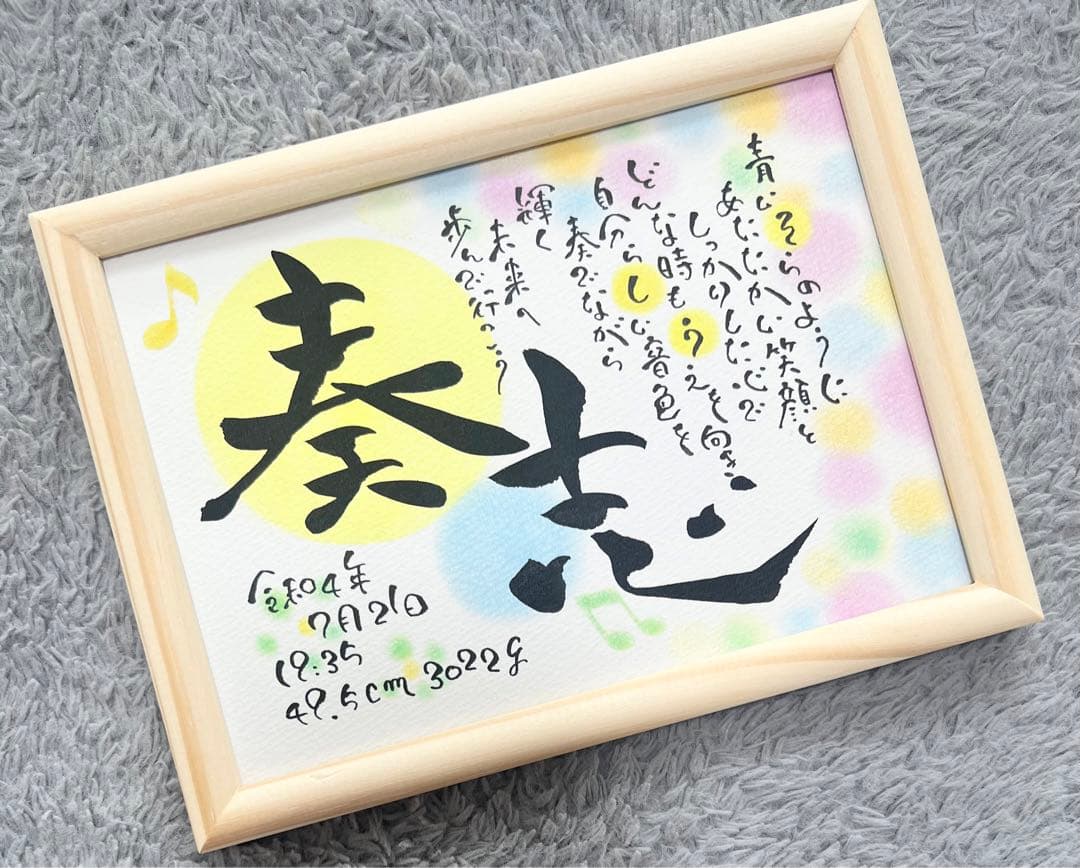 青いそらのように
あたたかい笑顔と
しっかりした心で
どんな時もうえを向き
自分らしい音色を
奏でながら
輝く
未来へ
歩んで行こう
奏志
令和4年
7月21日
19:35
49.5cm 3022g